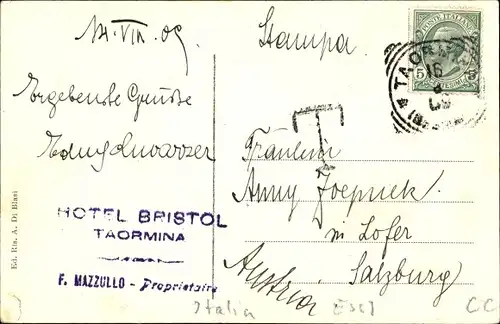 14. VIII. 09
Stampa
POSTE ITALIANE
5
5
TAORMINA
16
8
09
T
Ergebenste Grüsse
Fräulein
Anny
in Lofer
Salzburg
Austria
HOTEL BRISTOL
TAORMINA
F. MAZZULLO - Proprietaire
Ed. Ris. A. Di Blasi
Italia
CC